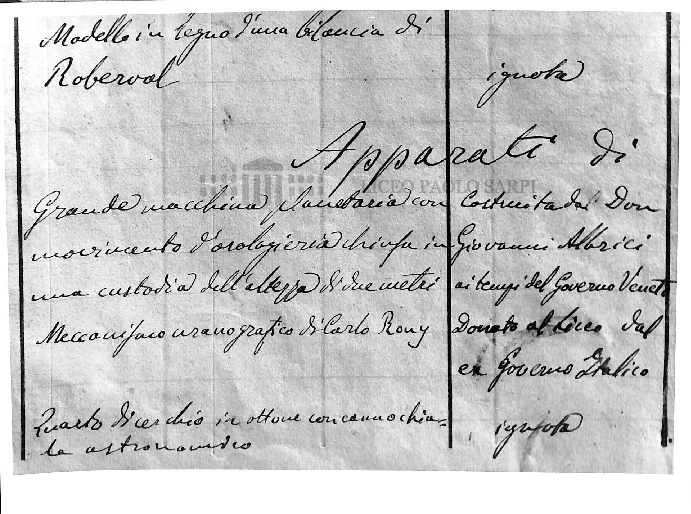 Modello in legno d'una bilancia di
Roberval
ignota
Apparati di
LICEO PAOLO SARPI
Grande macchina planetaria con
movimento d'orologieria chiusa in
una custodia dell'altezza di due metri
Costruita dal Don
Giovanni Albrici
ai tempi del Governo Veneto
Meccanismo uranografico di Carlo Rouy
Donato al Liceo dal
ex Governo Italico
Quarto di cerchio in ottone con cannochia=
le astronomico
ignota